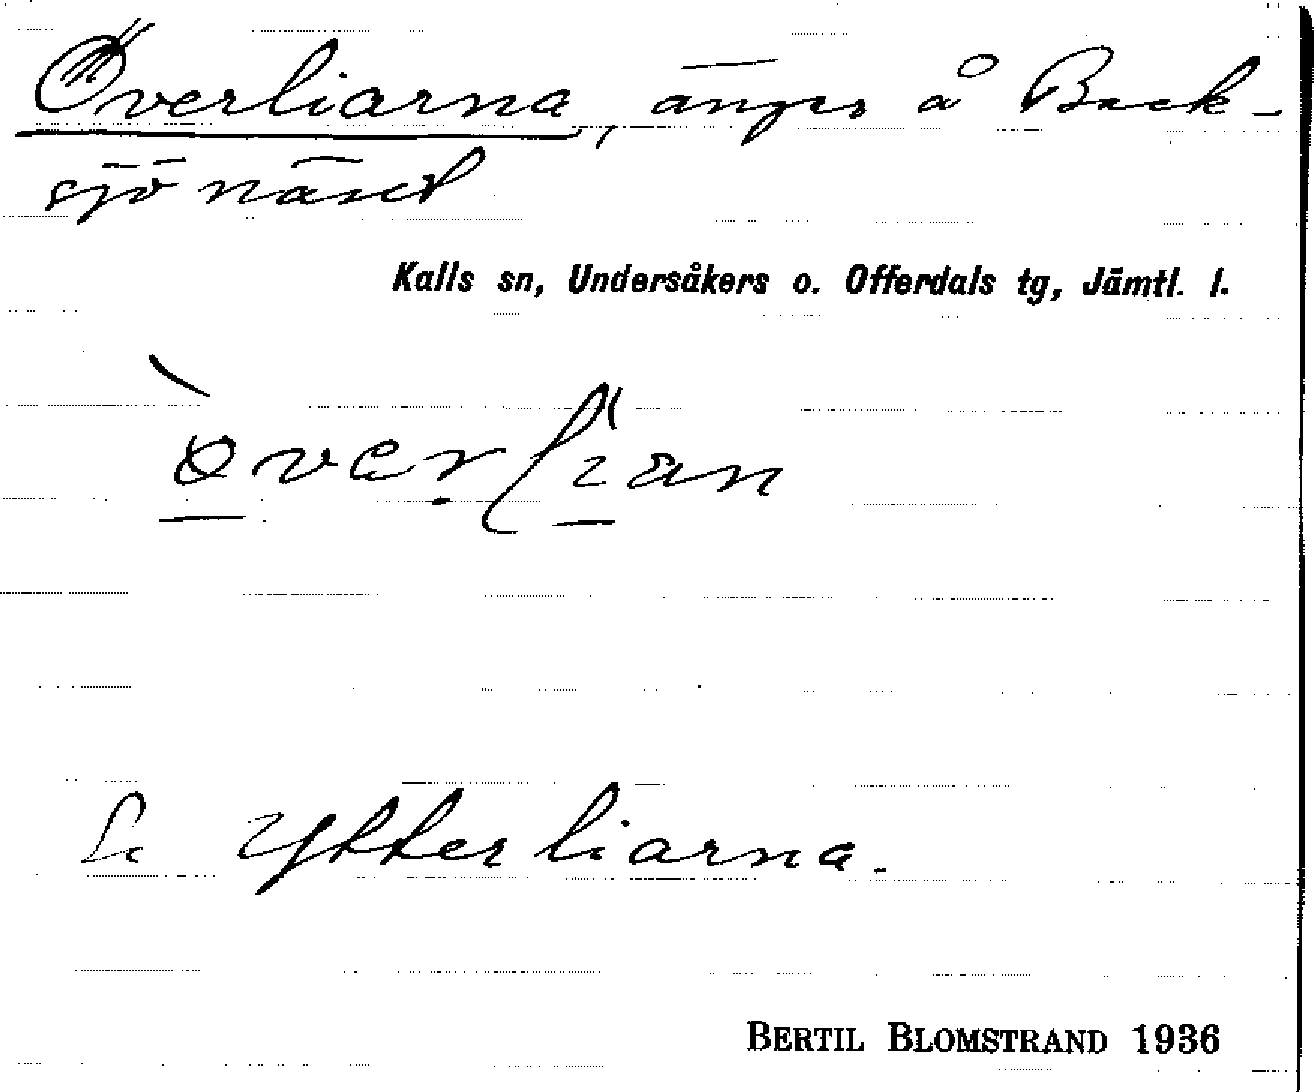 Överliarna, änger å Back-
sjönäset
Kalls sn, Undersåkers o. Offerdals tg, Jämtl. l.
Se Ytterliarna.
BERTIL BLOMSTRAND 1936